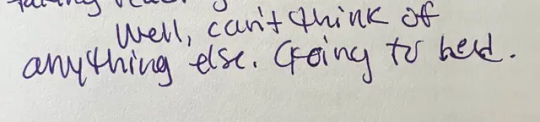 Well, can't think of
anything else. Going to bed.